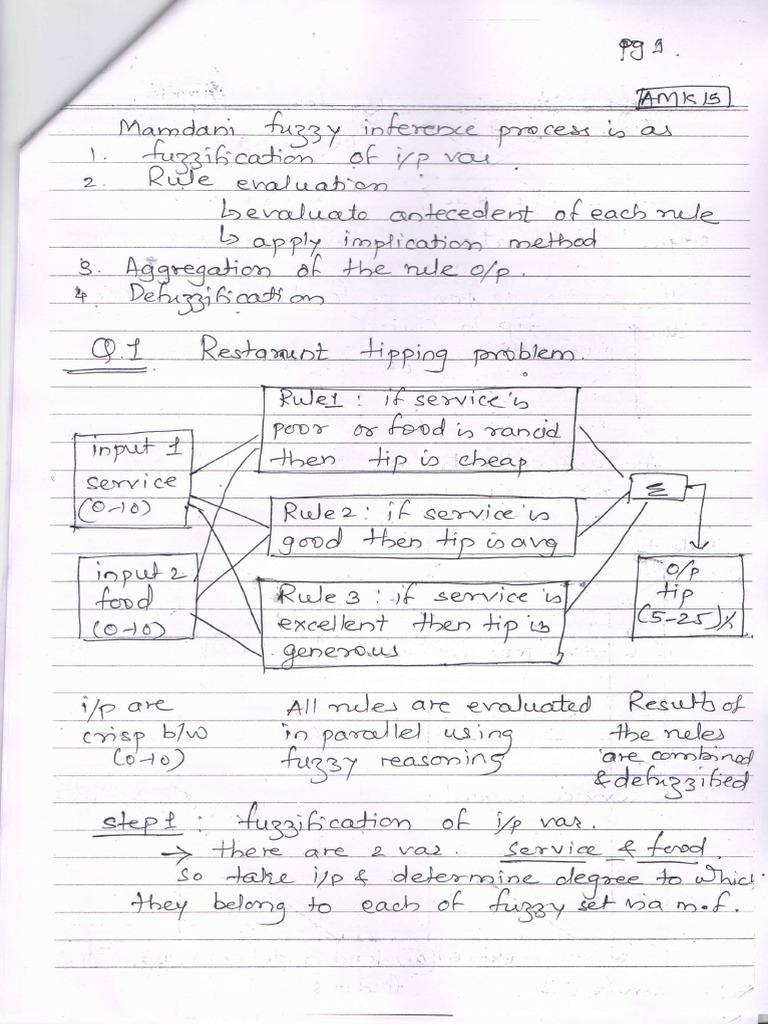 pg 1.
AMK15
Mamdani fuzzy inference process is as
1. fuzzification of i/p var.
2. Rule evaluation
↳ evaluate antecedent of each rule
↳ apply implication method
3. Aggregation of the rule o/p.
4. Defuzzification
Q.1 Restarunt tipping problem.
Rule1 : if service is
poor or food is rancid
then tip is cheap
input 1
service
(0-10)
Rule 2 : if service is
good then tip is avg
Σ
input 2
food
(0-10)
Rule 3 : if service is
excellent then tip is
generous
O/p
tip
(5-25)%
i/p are
crisp b/w
(0-10)
All rules are evaluated
in parallel using
fuzzy reasoning
Results of
the rules
are combined
& defuzzified
step 1 : fuzzification of i/p var.
→ there are 2 var. service & food.
so take i/p & determine degree to which
they belong to each of fuzzy set via m.f.